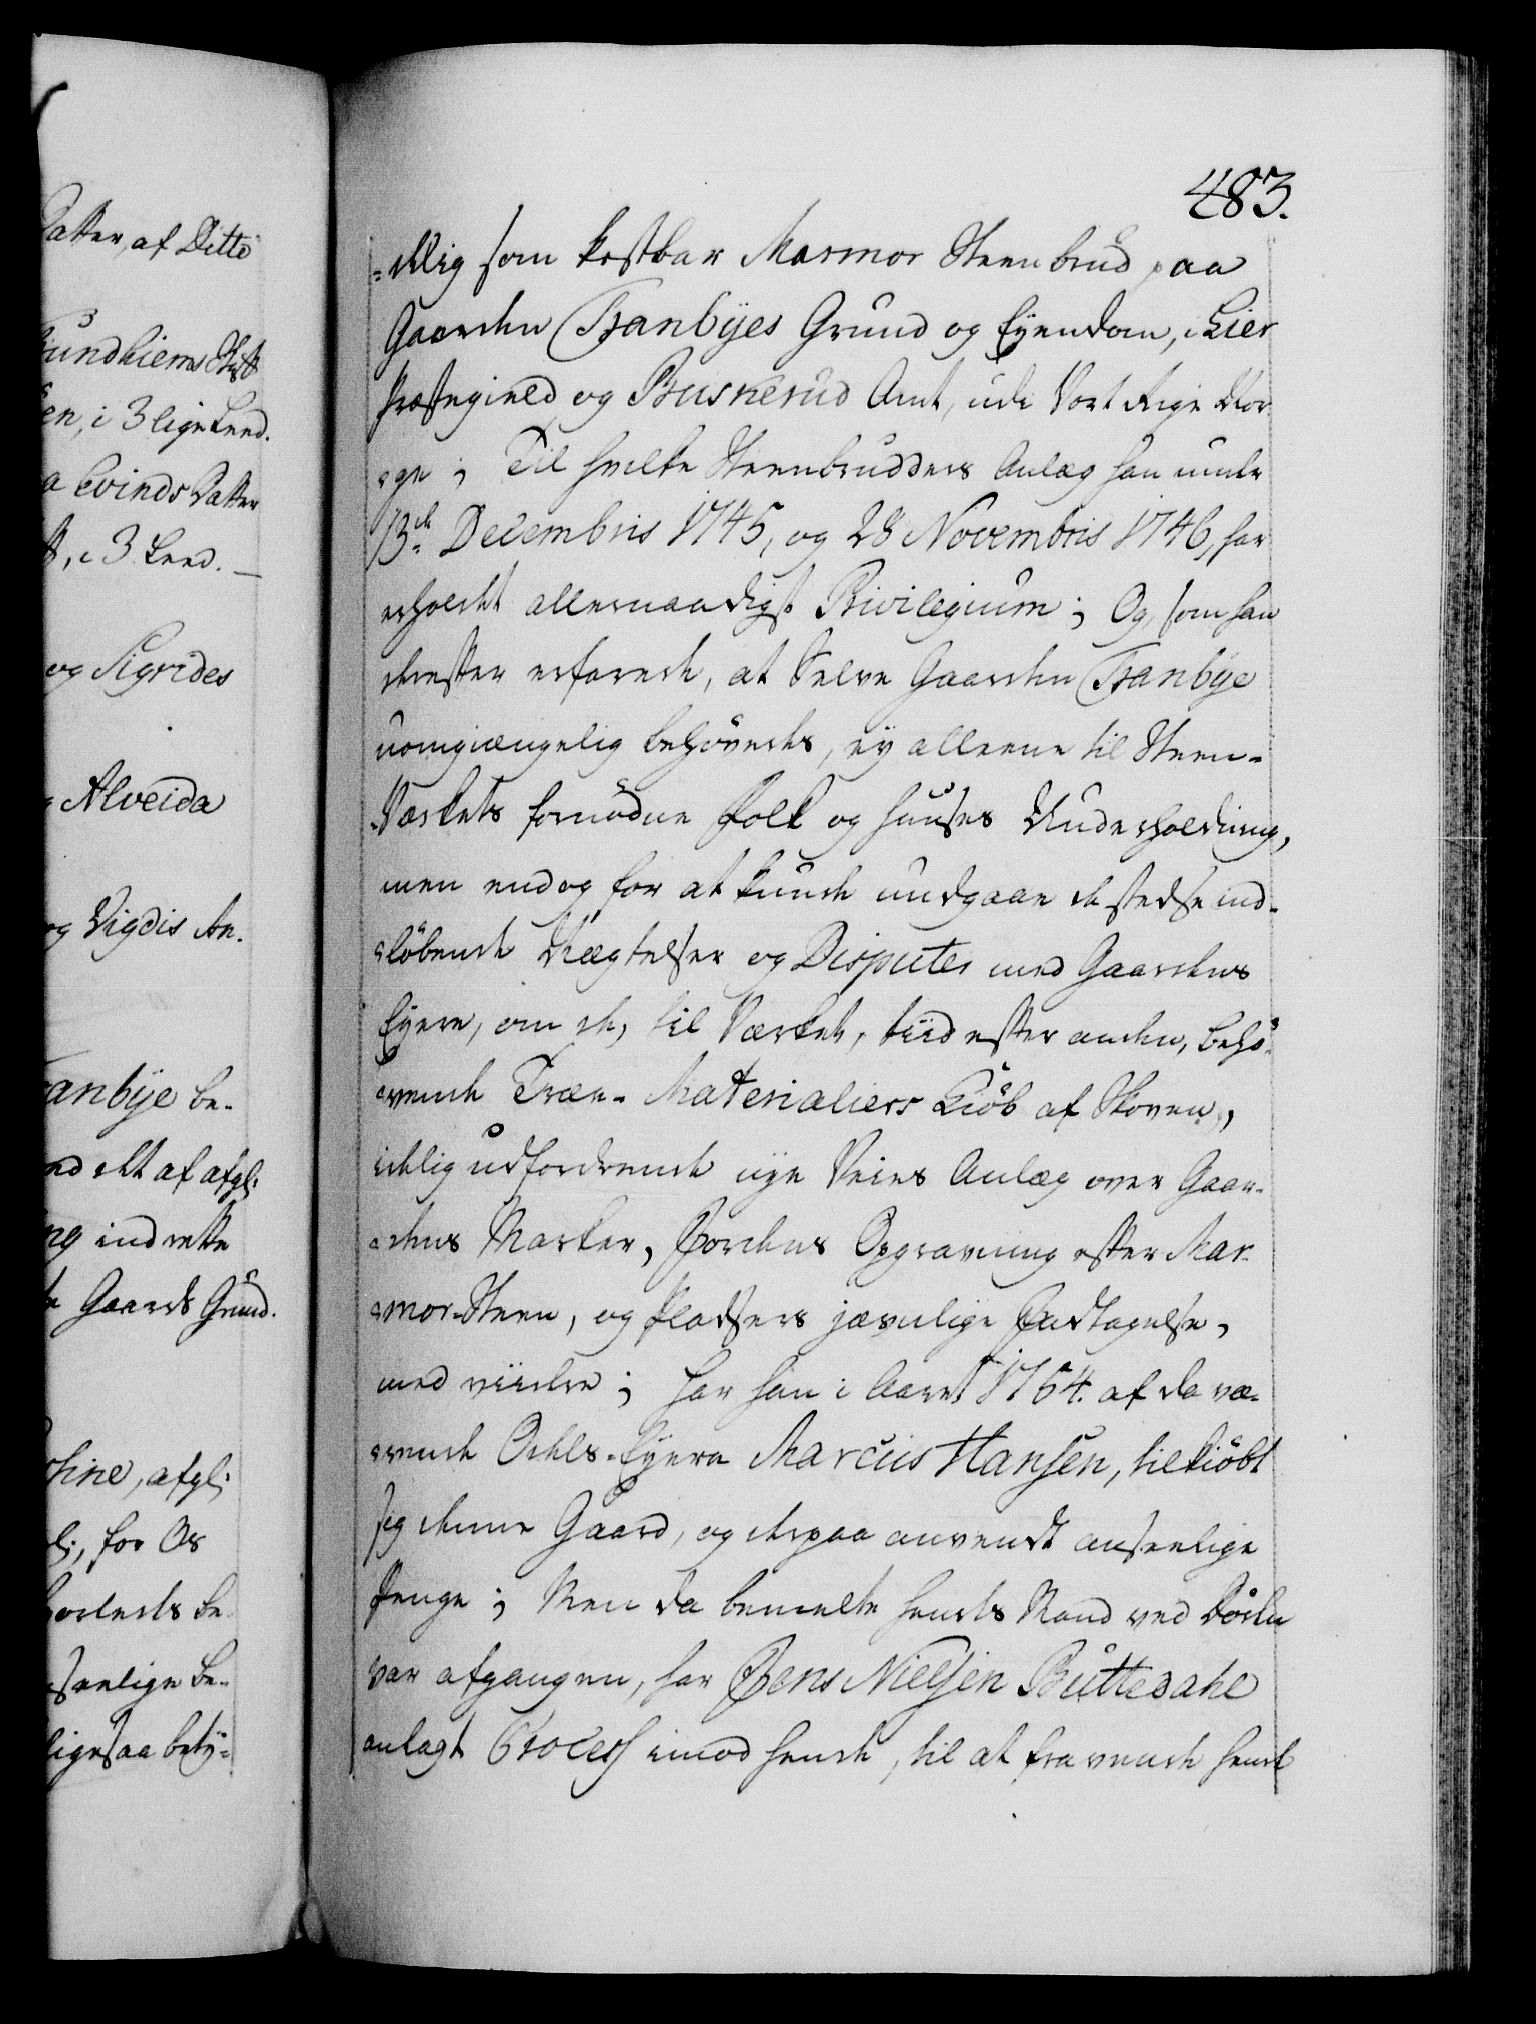 Datter, af Ditto
Sundhiems Skift
en, i 3 lige Lend.
a Evinds Datter
i 3 Lend. —
og Sigrides
Alveida
og Vigdis An-
Tranbÿe be-
ind rette
Gaards Grund.
hine, afgl:
for Os
senlige be-
ligesaa betÿ-
483.
-delig som kostbar Marmor Steenbrud paa
Gaarden Tranbÿes Grund og Eÿendom, i Lier
Præstegield og Buskerud Amt, udi Vort Rige Nor-
-ge; Til hvilke Steenbrudders Anlæg han under
13de Decembris 1745, og 28 Novembris 1746, har
erholdet allernaadigst Privilegium; Og, som han
derefter erfarede, at Selve Gaarden Tranbÿe
uomgiængelig behøvedes, eÿ alleene til Steen-
-Værkets fornødne Folk og Huuses Underholdning,
men endog for at kunde undgaae de stedse ind-
-løbende Nægtelser og Disputer med Gaardens
Eÿere, om de, til Værket, tiid efter anden, behø-
-vende Træe-Materialiers Kiøb af Skoven,
idelig udfordrende nÿe Veies Anlæg over Gaar-
-dens Marker, Jordens Opgravning efter Mar-
-mor-Steen, og Pladsers jævnlige Indtagelse,
med viidere; har han i Aaret 1764. af da væ-
-rende Odels-Eÿere Marcus Hansen, tilkiøbt
sig denne Gaard, og derpaa anvendt ansenlige
Penge; Men da bemelte hendes Mand ved Døden
var afgangen, har Jens Nielsen Buttedahl
anlagt Process imod hende, til at fravende hende